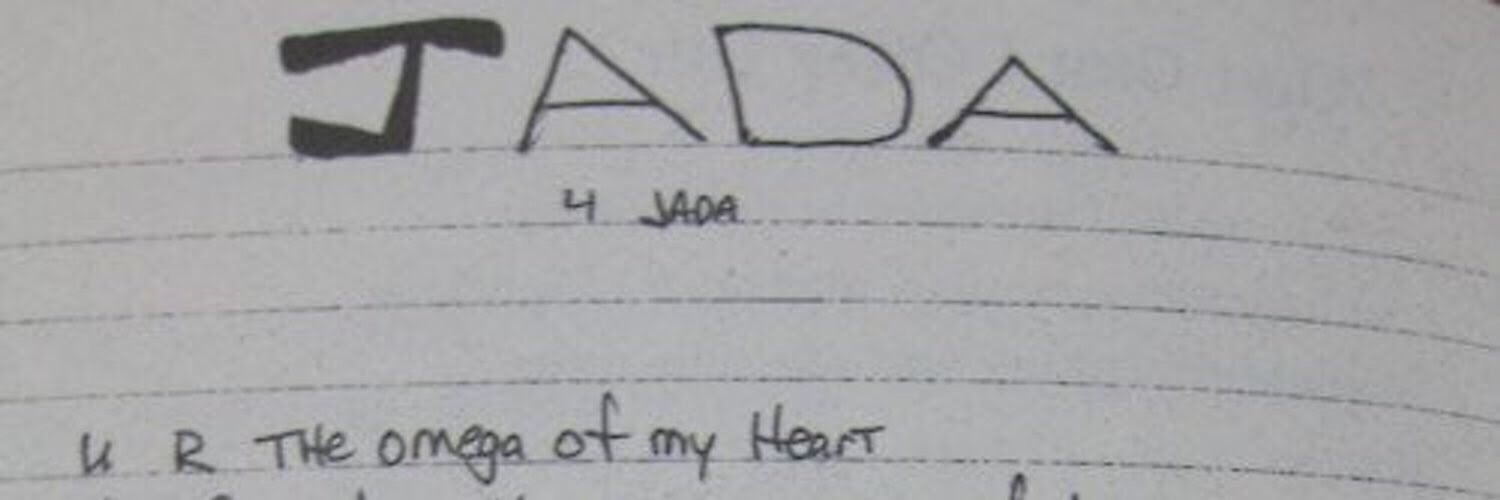 JADA
4 JADA
U R THe omega of my HearT